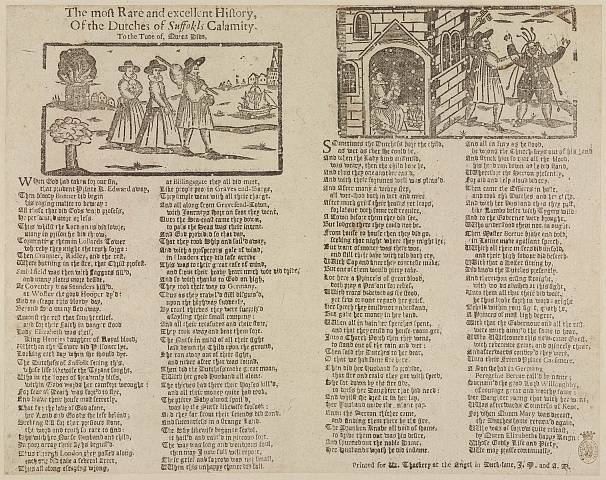 The moſt Rare and excellent Hiſtory,
Of the Dutches of Suffolks Calamity.
To the Tune of, Queen Dido.
When God had taken for our ſin,
that prudent Prince K. Edward away,
Then bloody Bonner did begin
his raging malice to bewray:
All thoſe that did Gods word profeſs,
He perſecuted more or leſs.
Thus whilſt the Lord on us did lowre,
many in priſon he did throw,
Tormenting them in Lollards Tower
whereby they might the truth
Then Cranmer, Ridley, and the reſt,
Were burning in the fire, that Chriſt profeſt.
Smithfield was then with Faggots fill'd,
and many places more beſide,
At Coventry was Sanders kill'd,
at Worſter eke good Hooper dy'd:
And to eſcape this bloody day,
Beyond ſea many fled away.
Amongſt the reſt that ſought relief,
and for their faith in danger ſtood
Lady Elizabeth was chief,
King Henries daughter of Royal blood,
Which in the Tower did Priſoner lye,
Looking each day when ſhe ſhould dye.
The Dutcheſs of Suffolk ſeeing this,
whoſe life likewiſe the Tyrant ſought,
Who in the hopes of heavenly bliſs,
within Gods word her comfort wrought:
For fear of Death was forc'd to flye,
And leave their houſe moſt ſecretly.
That for the love of God alone,
her Land and Goods ſhe left behind;
Seeking ſtill for that precious ſtone,
the word and truth ſo rare to find:
She with her Nurſe husband and child,
In poor array their
Thus through London they paſſed along,
each one did take a ſeveral ſtreet,
Thus all along eſcaping wrong,
at Billingsgate they all did meet,
Like people poor in Graveſend-Barge,
They ſimply went with all their charge.
And all along from Graveſend-Town,
with Journeys ſhort on foot they went,
Unto the Sea-coaſt came they down,
to paſs the Seas was their intent:
And God provided ſo that day,
That they took Ship and ſail'd away,
And with a proſperous gale of wind,
in Flanders they did ſafe arrive
This was to their great eaſe of mind,
and from their heavy heart much woe did drive;
And ſo with thanks to God on high,
They took their way to Germany.
Thus as they travel'd ſtill diſguis'd,
upon the highway ſuddenly,
By cruel thieves they were ſurpriz'd
aſſayling their ſmall company:
And all their treaſures and their ſtore,
They took away and beat them ſore.
The Nurſe in midſt of their fight
laid down the Child upon the ground,
She ran away out of their ſight,
and never after that was found:
Then did the Dutcheſs make great moan,
With her good Husband all alone.
The thieves had there their Horſes kill'd,
and all their money quite had took,
The pretty Baby almoſt ſpoil'd,
was by the Nurſe likewiſe forſook:
And they far from their friends did ſtand
And ſuccourleſs in a ſtrange Land.
The Sky likewiſe began to ſcowl,
it hail'd and rain'd in piteous ſort,
The way was long and wondrous foul,
then may I now full well report,
Their grief and ſorrow was not ſmall,
When this unhappy chance did fall.
Sometimes the Dutcheſs bore the child,
as wet as ever ſhe could be,
And when the Lady kind and mild,
was weary, then the child bore he,
And thus they one another eas'd,
And with their fortunes both was pleas'd
And after many a weary ſtep,
all wet-ſhod both in dirt and mire
After much grief their hearts yet leapt,
for labour doth ſome reſt require,
A Town before them they did ſee,
But lodged there they could not be.
From houſe to houſe then they did go,
ſeeking that night where they might lie;
But want of money was their woe,
and ſtill their babe with cold did cry,
With Cap and knee they courteſie make,
But none of them would pity take.
Lo here a Princeſs of great blood,
doth pray a Peaſant for relief,
With tears bedewed as ſhe ſtood,
yet few or none regard her grief.
Her ſpeech they could not underſtand,
But gave her money in her hand.
When all in vain her ſpeeches ſpent,
and that they could no houſe room get,
Into a Church Porch then they went,
to ſtand out of the rain and wet:
Then ſaid the Dutcheſs to her dear,
O that we had ſome fire here.
Then did her Husband ſo provide,
that fire and coals they got with ſpeed;
She ſat down by the fire ſide,
to dreſs her Daughter that had need:
And whilſt ſhe dreſt it in her lap,
Her Husband made the infants pap.
Anon the Sexton thither came,
and finding them there by the fire,
The drunken Knave all void of ſhame,
to drive them out was his deſire,
And ſpurned out the noble Dame,
Her Husbands wrath he did inflame.
And all in fury as he ſtood,
he wrung the Church keys out of his hand
And ſtruck him ſo that all the blood,
his head ran down as he did ſtand,
Wherefore the Sexton preſently,
For aid and help aloud did cry.
Then came the Officers in haſte,
and took the Dutcheſs and her child,
And with her Husband thus they paſt,
like Lambs beſet with Tygers wild
And to the Governor were brought,
Who underſtood them not in ought.
Then Maſter Bertue brave and bold,
in Latine made a gallant ſpeech,
Which all their miſery did unfold
and their high favour did beſeech:
With that a Doctor ſitting by,
Did know the Dutcheſs preſently.
And thereupon ariſing ſtraight,
with words abaſhed at this ſight,
Unto them all that there did wait,
he thus brake forth in words aright
Behold within your ſight, quoth he,
A Princeſs of moſt high degree.
With that the Governour and all the reſt,
were much amazed the ſame to hear,
Who Welcomed this new come Gueſt,
with reverence great, and princely chear,
And afterwards convey'd they were,
Unto their friend Prince Caſſemere.
A Son ſhe had in Germany,
Peregrine Bertue call'd by name:
Surnam'd the good Lord Willoughby,
of courage great and worthy fame:
Her Daughter young that with her went,
Was afterwards Counteſs of Kent,
For when Queen Mary was deceaſt,
the Dutcheſs home return'd again,
Who was of ſorrow quite releaſt,
by Queen Elizabeths happy Reign:
Whoſe Godly Life and Piety,
We may praiſe continually.
Printed for W. Thackery at the Angel in Duck-lane, J. M. and A. M.